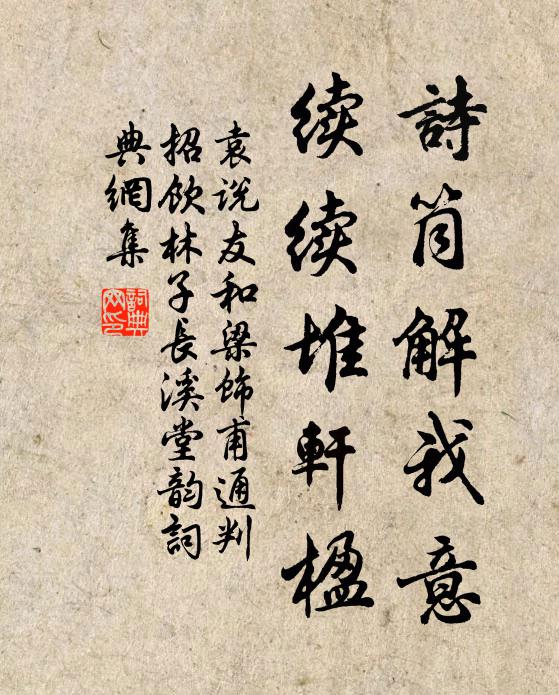 詩筒解我意
续续堆軒楹
袁说友和梁饰甫通判
招饮林子长溪堂韵詞
典網集
詞典網印